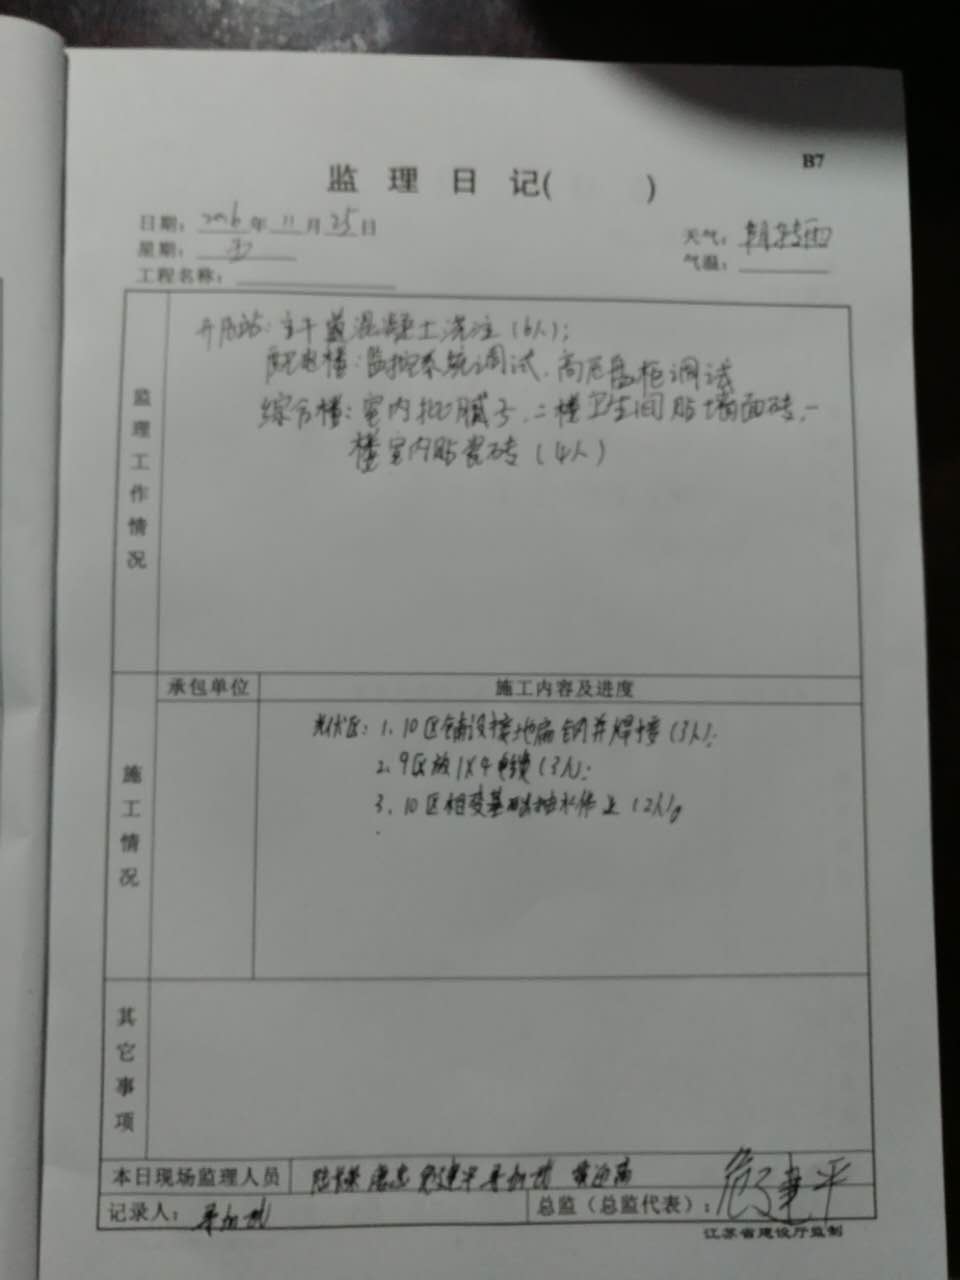 B7
监 理 日 记( )
日期：2016年11月25日
天气：阴转雨
星期：五
气温：
工程名称：
监理工作情况
升压站：主干道混凝土浇注（6人）；
配电楼：监控系统调试、高压盘柜调试
综合楼：室内批腻子、二楼卫生间贴墙面砖、一
楼室内贴瓷砖（4人）
承包单位 施工内容及进度
施工情况
光伏区：1、10区铺设接地扁钢并焊接（3人）；
2、9区放1X4电缆（3人）；
3、10区箱变基础抽水作业（2人）。
其它事项
本日现场监理人员
记录人：
总监（总监代表）：危建平
江苏省建设厅监制